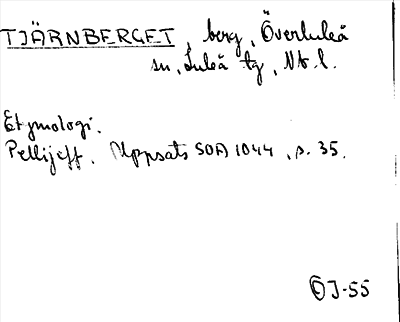 TJÄRNBERGET, berg, Överluleå
sn, Luleå tg, Nb l.
Etymologi.
Pellijeff. Uppsats SOA 1044, s. 35.
ÖJ-55